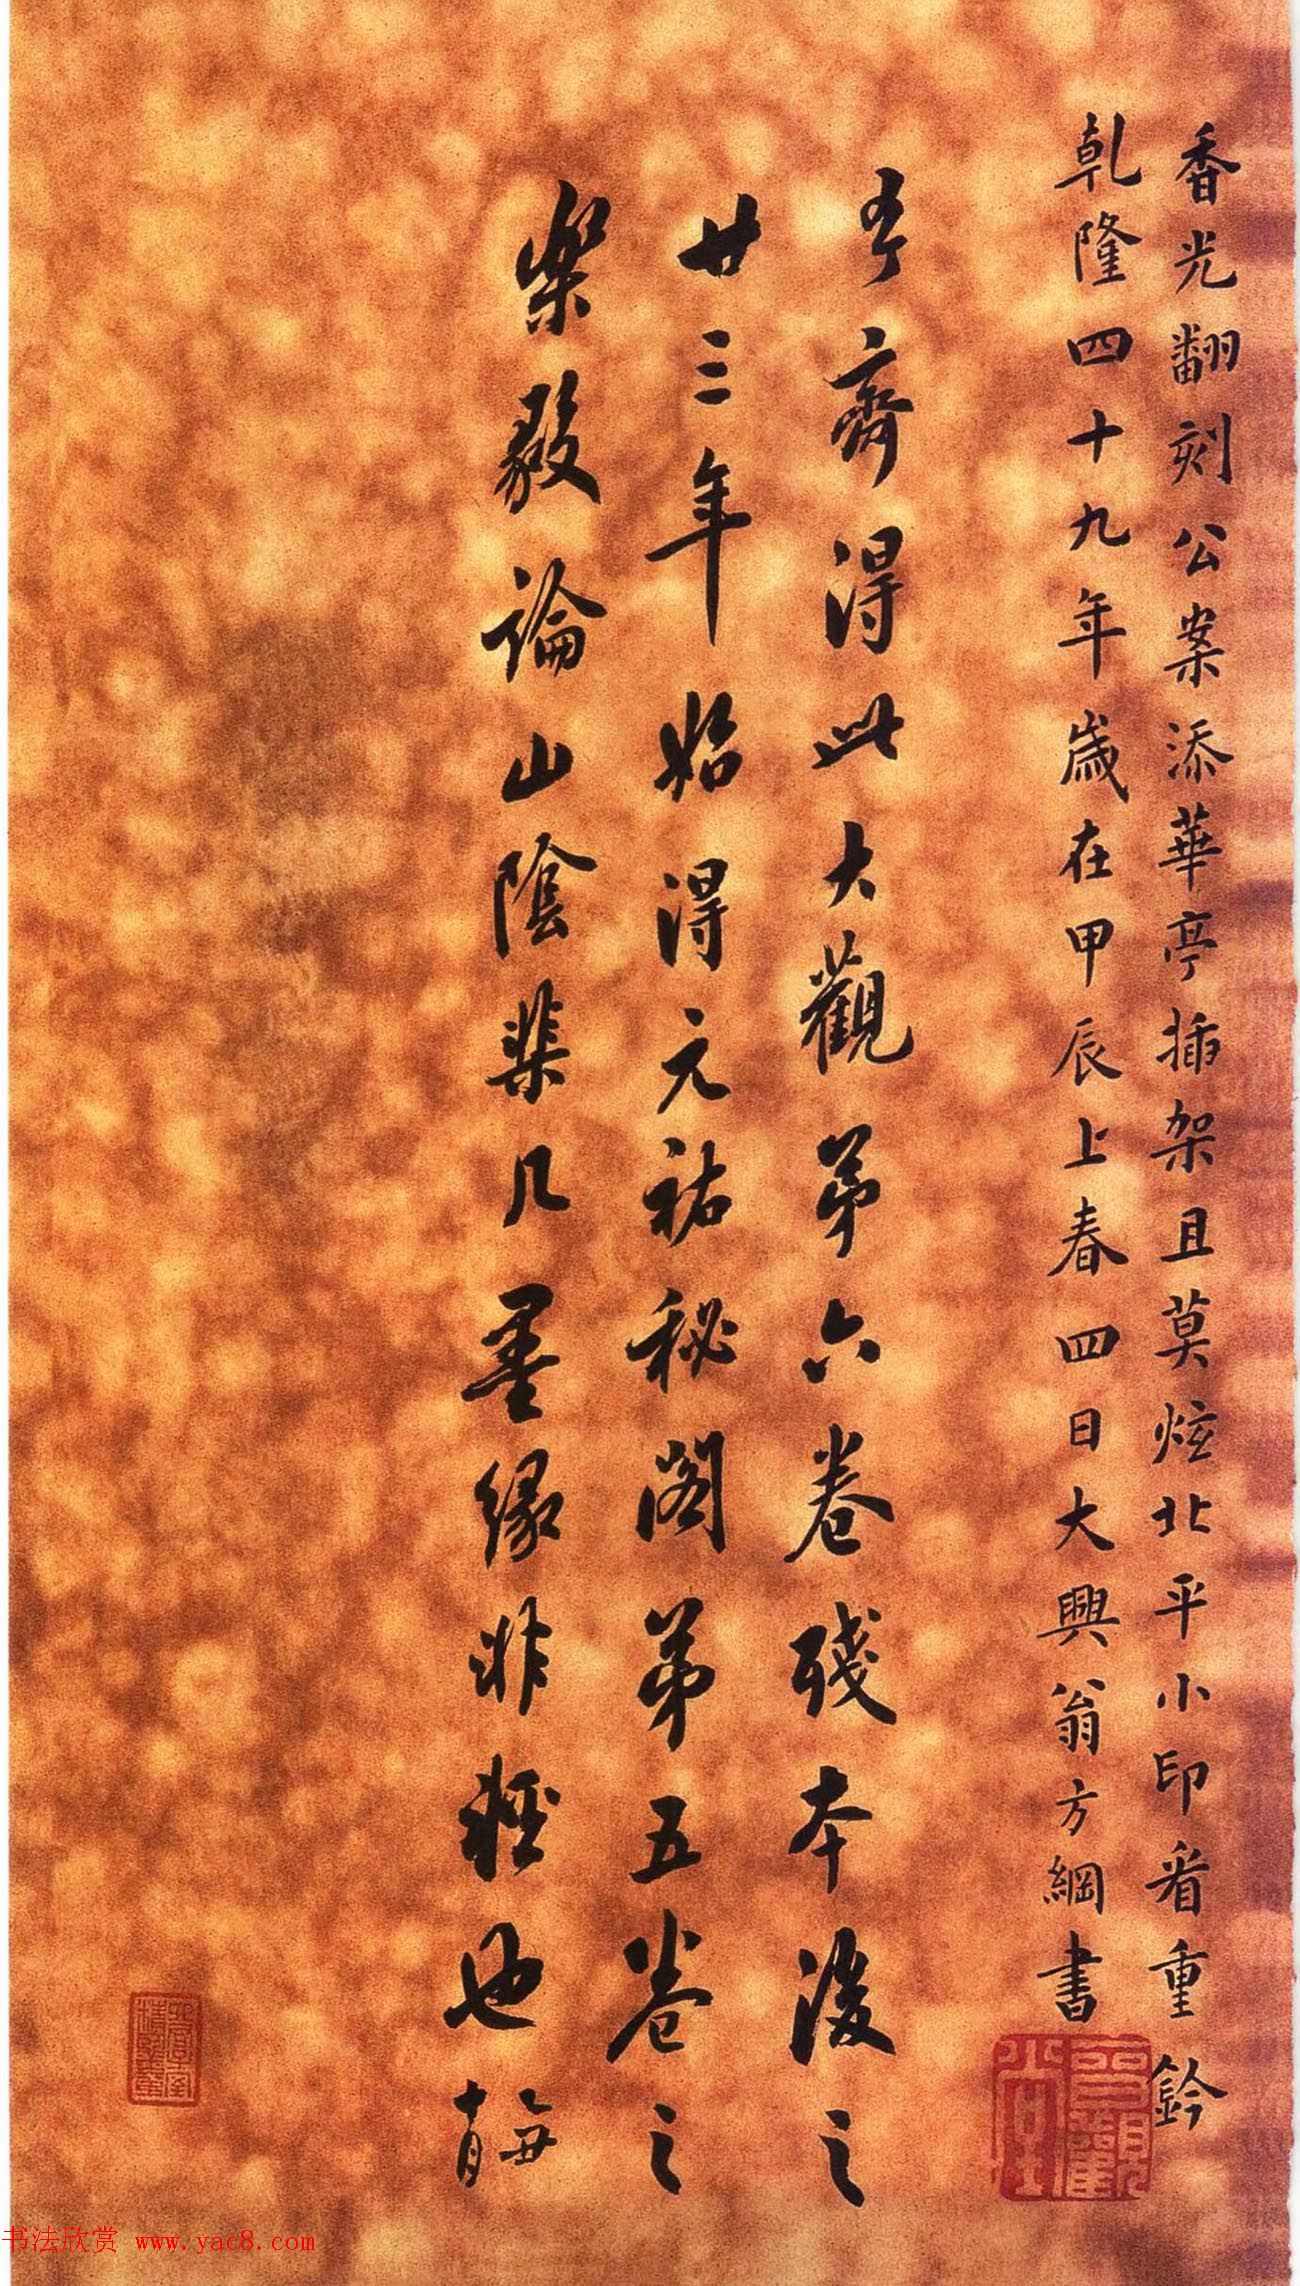 香光翻刻公案添華亭插架且莫炫北平小印看重鈐
乾隆四十九年歲在甲辰上春四日大興翁方綱書
齋得此大觀第六卷殘本後之
廿三年始得元祐秘閣第五卷之
樂毅論山陰棐几墨緣非輕也
书法欣赏 www.yac8.com